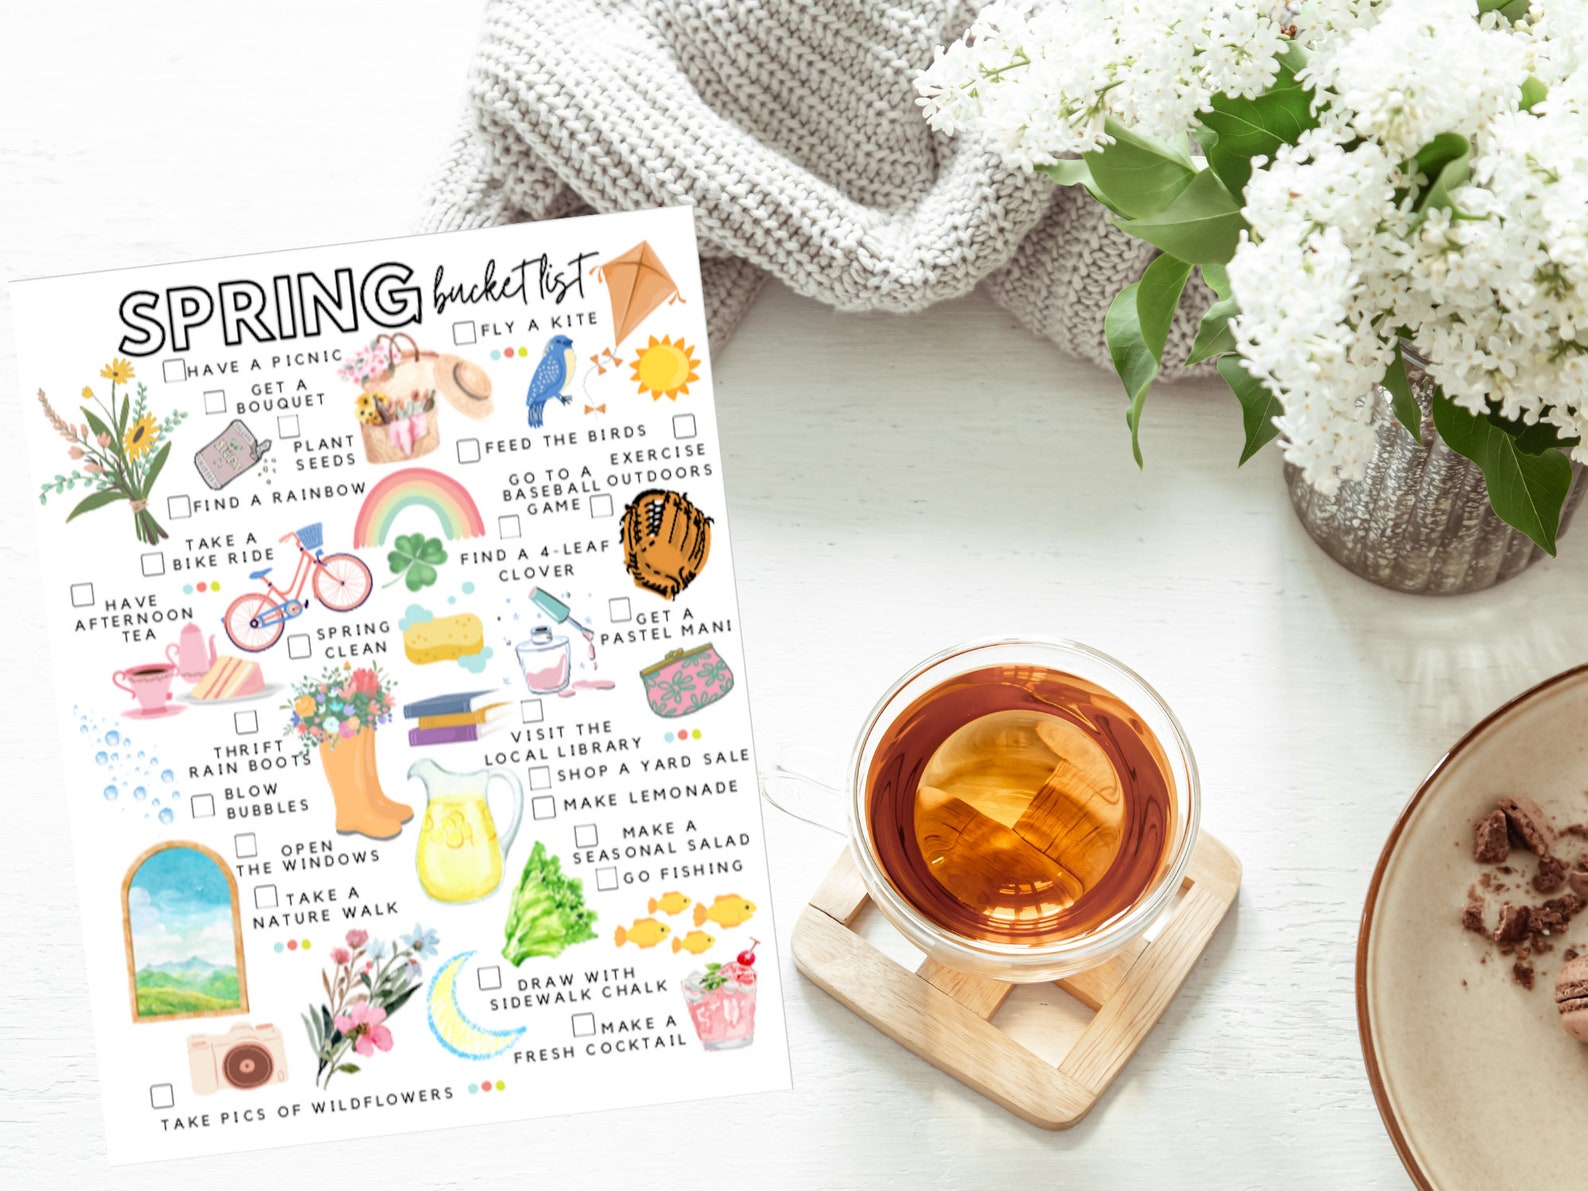 SPRING bucket list
FLY A KITE
HAVE A PICNIC
GET A
BOUQUET
PLANT
SEEDS
FEED THE BIRDS
EXERCISE
OUTDOORS
GO TO A
BASEBALL
GAME
FIND A RAINBOW
TAKE A
BIKE RIDE
FIND A 4-LEAF
CLOVER
HAVE
AFTERNOON
TEA
SPRING
CLEAN
GET A
PASTEL MANI
THRIFT
RAIN BOOTS
VISIT THE
LOCAL LIBRARY
SHOP A YARD SALE
BLOW
BUBBLES
MAKE LEMONADE
OPEN
THE WINDOWS
MAKE A
SEASONAL SALAD
GO FISHING
TAKE A
NATURE WALK
DRAW WITH
SIDEWALK CHALK
MAKE A
FRESH COCKTAIL
TAKE PICS OF WILDFLOWERS